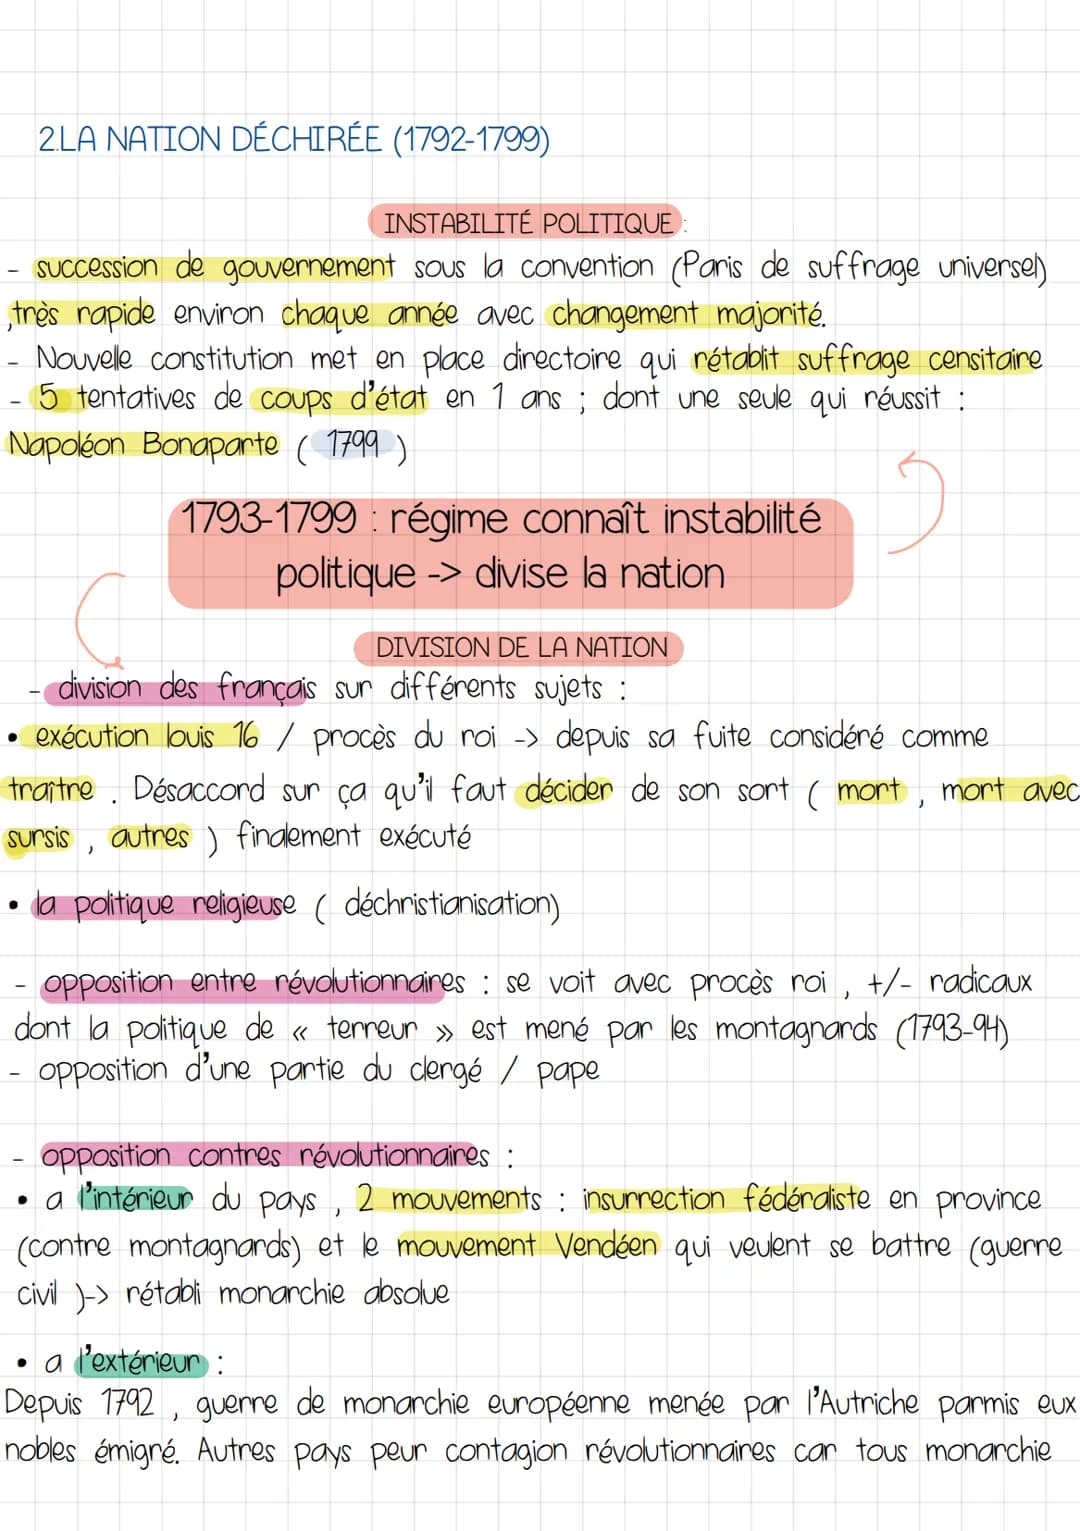 2.LA NATION DÉCHIRÉE (1792-1799)
INSTABILITÉ POLITIQUE :
- succession de gouvernement sous la convention (Paris de suffrage universel)
,très rapide environ chaque année avec changement majorité.
- Nouvelle constitution met en place directoire qui rétablit suffrage censitaire
- 5 tentatives de coups d'état en 1 ans ; dont une seule qui réussit :
Napoléon Bonaparte ( 1799 )
1793-1799 : régime connaît instabilité
politique -> divise la nation
DIVISION DE LA NATION
- division des français sur différents sujets :
• exécution louis 16 / procès du roi -> depuis sa fuite considéré comme
traître . Désaccord sur ça qu'il faut décider de son sort ( mort , mort avec
sursis , autres ) finalement exécuté
• la politique religieuse ( déchristianisation)
- opposition entre révolutionnaires : se voit avec procès roi , +/- radicaux
dont la politique de « terreur » est mené par les montagnards (1793-94)
- opposition d'une partie du clergé / pape
- opposition contres révolutionnaires :
• a l'intérieur du pays , 2 mouvements : insurrection fédéraliste en province
(contre montagnards) et le mouvement Vendéen qui veulent se battre (guerre
civil )-> rétabli monarchie absolue
• a l'extérieur :
Depuis 1792 , guerre de monarchie européenne menée par l'Autriche parmis eux
nobles émigré. Autres pays peur contagion révolutionnaires car tous monarchie